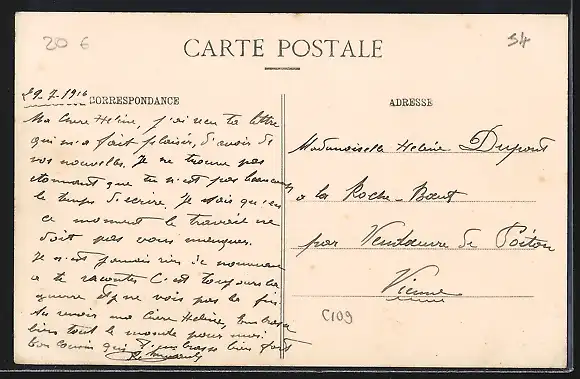 20 €
54
CARTE POSTALE
29-7-1916
CORRESPONDANCE
ADRESSE
Ma Chere Helène, j'ai reçu ta lettre
qui m'a fait plaisir, d'avoir de
vos nouvelles. Je ne trouve pas
etonnant que tu n'est pas beaucoup
le temps d'ecrire. Je sais qu'en
ce moment le travail ne
doit pas vous manquer.
Je n'est jamais rien de nouveau
a te raconter C'est toujours la
guerre et je ne vois pas la fin
Au revoir ma Chere Helène, embrasse
bien tout le monde pour moi
Ton Cousin qui t'embrasse bien fort
Mademoiselle Helène Dupont
a la Roche-Bœuf
par Vendœuvre de Poitou
Vienne
C109